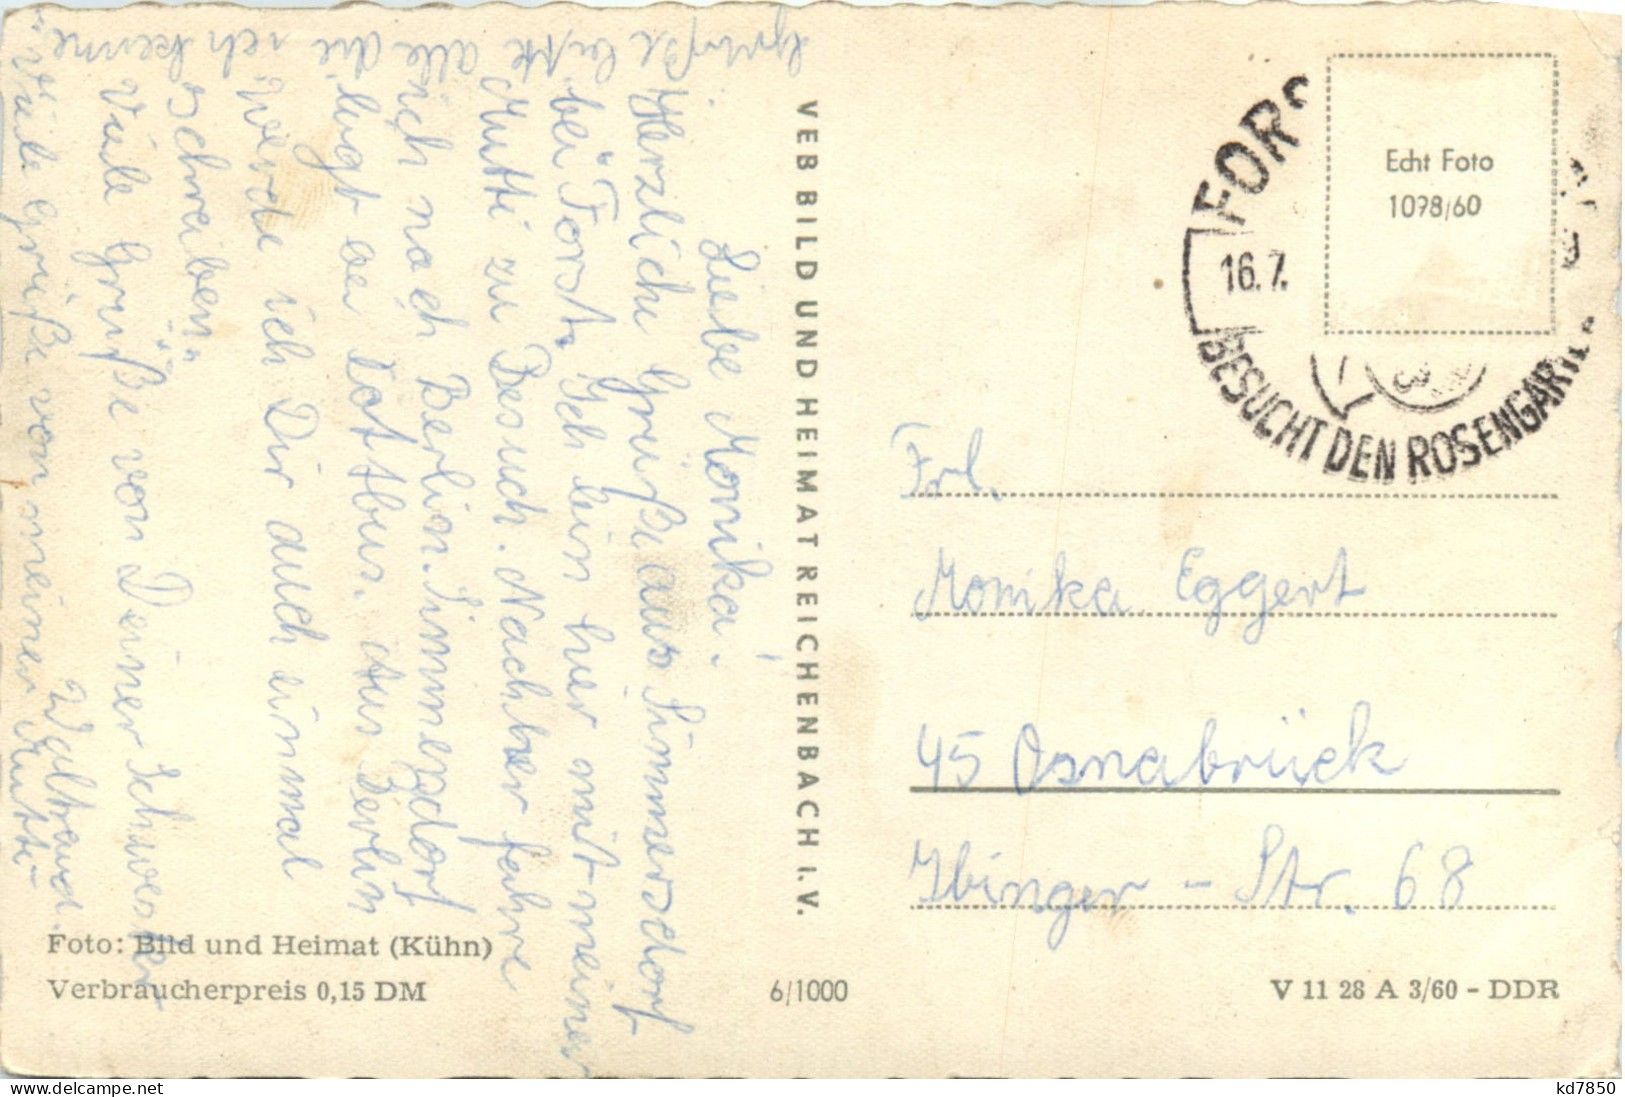 Liebe Monika!
Herzliche Grüße aus Simmersdorf
bei Forst. Ich bin hier mit meiner
Mutti zu Besuch. Nachher fahre
ich nach Berlin. Simmersdorf
liegt bei Cottbus. Aus Berlin
werde ich Dir auch einmal
schreiben.
Viele Grüße von Deiner Schwester
Waltraud.
Viele Grüße von meiner Mutti
Grüße bitte alle die ich kenne
VEB BILD UND HEIMAT REICHENBACH I. V.
Echt Foto
1098/60
FORS
16.7.
BESUCHT DEN ROSENGARTEN
Frl.
Monika Eggert
45 Osnabrück
Ibinger - Str. 68
Foto: Bild und Heimat (Kühn)
Verbraucherpreis 0,15 DM
6/1000
V 11 28 A 3/60 - DDR
kd7850